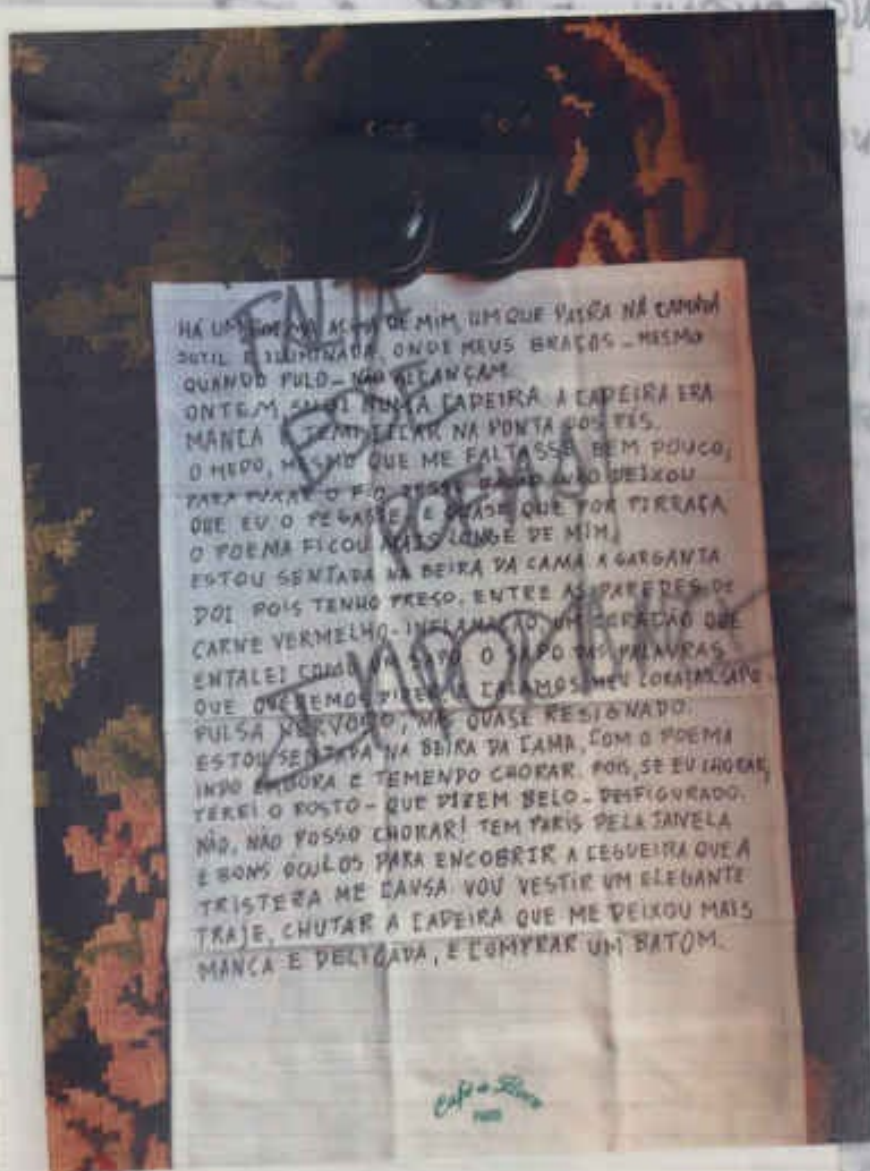 HÁ UM POEMA ACIMA DE MIM, UM QUE PAIRA NA CAMADA
SUTIL E ILUMINADA, ONDE MEUS BRAÇOS - MESMO
QUANDO PULO - NÃO ALCANÇAM.
ONTEM, SUBI NUMA CADEIRA. A CADEIRA ERA
MANCA E TEMI FICAR NA PONTA DOS PÉS.
O MEDO, MESMO QUE ME FALTASSE BEM POUCO,
PARA PUXAR O FIO NÃO DEIXOU
QUE EU O PEGASSE E QUASE QUE POR PIRRAÇA
O POEMA FICOU MAIS LONGE DE MIM.
ESTOU SENTADA NA BEIRA DA CAMA A GARGANTA
DOI POIS TENHO PRESO, ENTRE AS PAREDES DE
CARNE VERMELHO-INFLAMAÇÃO UM CORAÇÃO QUE
ENTALEI COMO UM SAPO. O SAPO DAS PALAVRAS
QUE QUEREMOS DIZER E CALAMOS. MEU CORAÇÃO-SAPO
PULSA NERVOSO, MAS QUASE RESIGNADO.
ESTOU SENTADA NA BEIRA DA CAMA, COM O POEMA
INDO EMBORA E TEMENDO CHORAR. POIS, SE EU CHORAR,
TEREI O ROSTO - QUE DIZEM BELO - DESFIGURADO.
NÃO, NÃO POSSO CHORAR! TEM PARIS PELA JANELA
E BONS OCULOS PARA ENCOBRIR A CEGUEIRA QUE A
TRISTEZA ME CAUSA. VOU VESTIR UM ELEGANTE
TRAJE, CHUTAR A CADEIRA QUE ME DEIXOU MAIS
MANCA E DELICADA, E COMPRAR UM BATOM.
FALTA
ESSE
POEMA!
IMPORTANTE
Café de Flore
PARIS